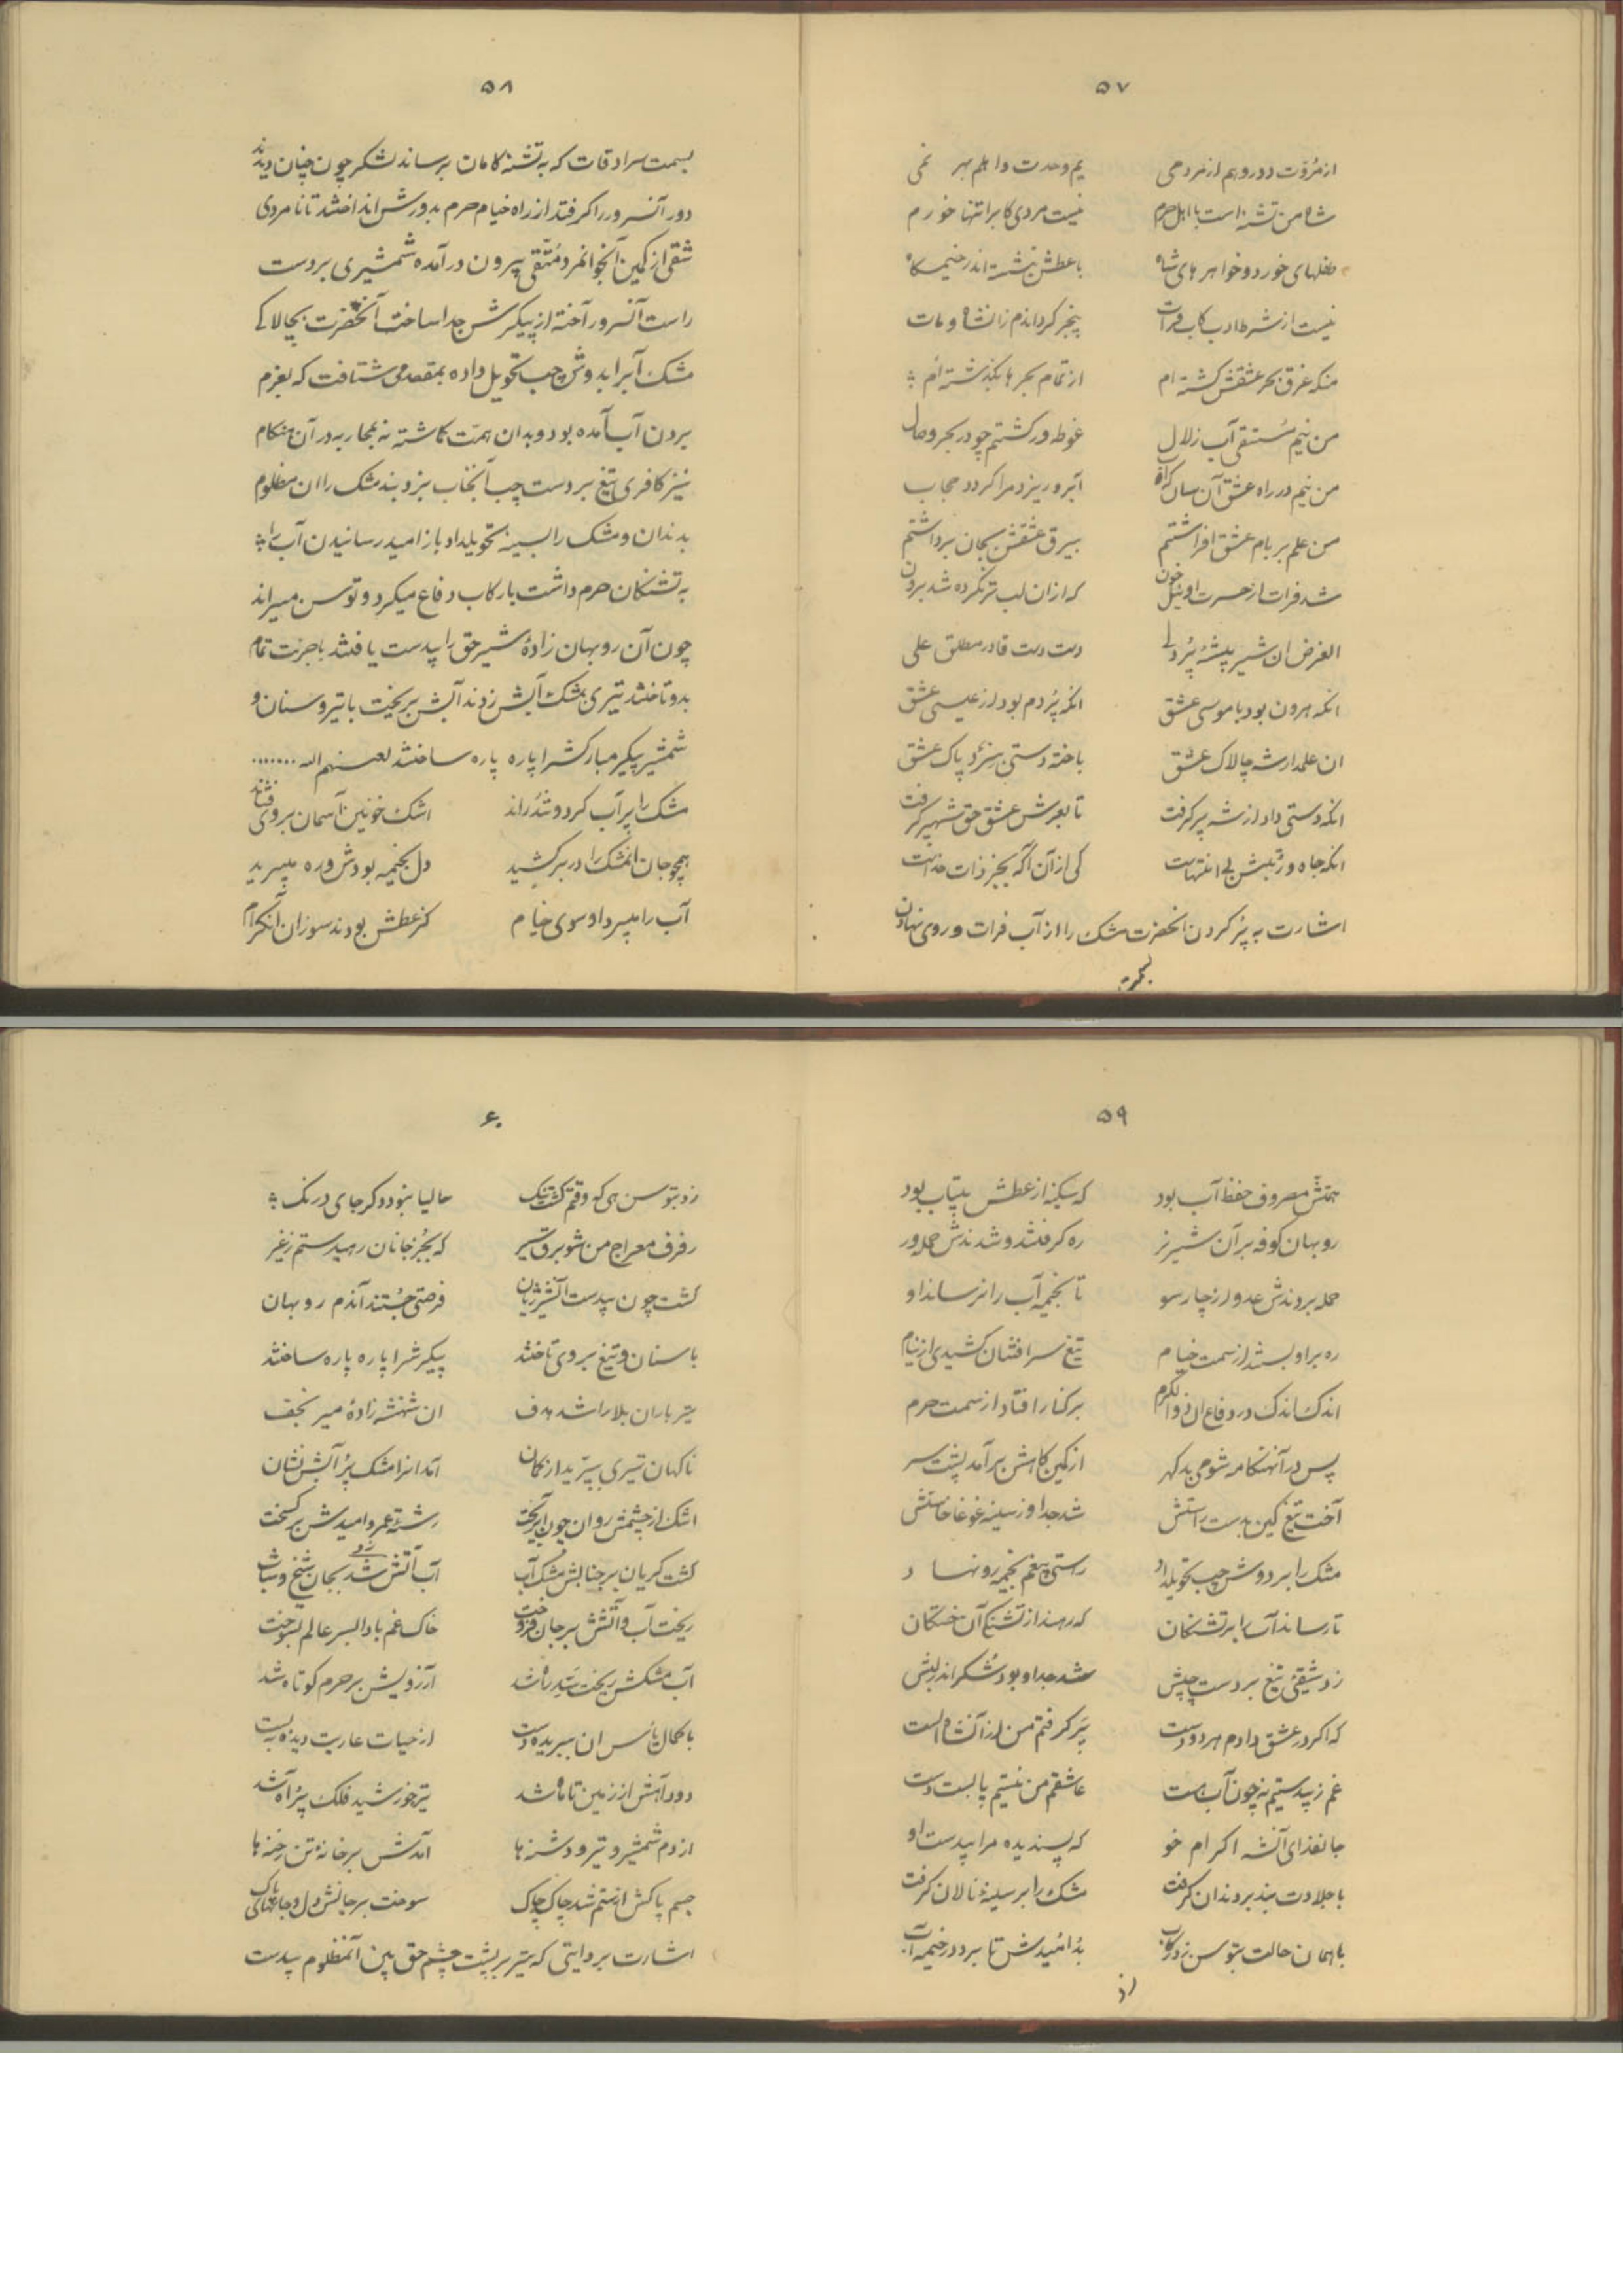 ۵۷
از مروّت دور و هم از مردمی یم وحدت را هم بهر نمی
شاه من تشنه است با اهل حرم نیست مردی کابرا تنها خورم
طفلهای خورد و خواهرهای شاه با عطش بنشسته اندر خیمه‌گاه
نیست از شرط ادب کاب فرات
منکه غرق بحر عشقش گشته ام از تمام بحرها بگذشته ام
من نیم مستسقی آب زلال غوطه‌ور گشتم چو در بحر وصال
من نیم در راه عشق آن سان آبرو ریزد مرا گردد حجاب
من علم بر بام عشق افراشتم بیرق عشقش بجان برداشتم
شد فرات از حسرت او نیل خون که از ان لب تر نکرده شد برون
الغرض ان شیر بیشه پُردلی دست دست قادر مطلق علی
انکه هرون بود با موسی عشق انکه پُر دم بود از عیسی عشق
ان علمدار شه چالاک عشق باخته دستی پاک عشق
انکه دستی داد از شه پر گرفت تا بعرش عشق حق شهپر گرفت
انکه جاه و رتبتش بی انتهاست کی از آن آگه بجز ذات خداست
اشارت به پُر کردن انحضرت مشک را از آب فرات و روی نهادن
بسمت
۵۸
بسمت سرادقات که به تشنه کامان برساند لشکر چون چنان دیدند
دور آنسرور را گرفتند از راه خیام حرم بدورش انداختند تا نامردی
شقی از کمین آنجوانمرد مُتّقی بیرون در آمده شمشیری بر دست
راست آنسرور آخته از پیکرش جدا ساخت آنحضرت بچالاکی
مشک آبرا بدوش چپ تحویل داده بمقصد می شتافت که بعزم
بردن آب آمده بود و بدان همّت گماشته نه بمحاربه در آن هنگام
نیز کافری تیغ بر دست چپ آنجناب بزد بند مشک را ان مظلوم
بدندان و مشک را بسینه تحویلداد باز امید رسانیدن آب را
به تشنگان حرم داشت با رکاب دفاع میکرد و توسن میراند
چون آن روبهان زادهٔ شیر حق را بیدست یافتند با جرئت تمام
بدو تاختند تیری بمشک آبش زدند آبش بریخت با تیر و سنان و
شمشیر پیکر مبارکشرا پاره پاره ساختند لعنهم الله .......
مشک را پر آب کرد و تُند راند اشک خونین آسمان بر وی فشاند
همچو جان انمشک را در بر کشید دل بخیمه بودش و ره میبرید
آب را میبرد او سوی خیام کز عطش بودند سوزان
۵۹
همتش مصروف حفظ آب بود که سکینه از عطش بیتاب بود
روبهان کوفه بر آن شیر نر ره گرفتند و شدندش حمله‌ور
حمله بردندش عدو از چار سو تا بخیمه آب را نرساند او
ره بر او بستند از سمت خیام تیغ سرافشان کشیدی از نیام
اندک اندک در دفاع ان ذو الکرم بر کنار افتاد از سمت حرم
پس در آنهنگامه شومی بد گهر از کمین‌گاهش بر آمد پشت سر
آخت تیغ کین بدست راستش شد جدا و ز سینه غوغا خاستش
مشک را بر دوش چپ تحویلداد راستی بیغم بخیمه رو نهاد
تا رساند آب را بر تشنگان که رهند از تشنگی آن خستگان
زد شقیئی تیغ بر دست چپش شد جدا و بود شُکر اندر لبش
که اگر در عشق دادم هر دو دست پر گرفتم من از آنشاه الست
غم ز بیدستیم نه چون آب هست عاشقم من نیستم پابست دست
جانفدای آنشه اکرام خو که پسندیده مرا بیدست او
با جلادت بند بر دندان گرفت مشک را بر سینه نالان گرفت
با همان حالت بتوسن زد رکاب بُد امیدش تا برد در خیمه آب
زد
۶۰
زد بتوسن هی که وقتم گشت تنگ حالیا نبود دگر جای درنگ
رفرف معراج من شو برق سیر که بجُز جانان رهیدستم ز غیر
گشت چون بیدست آنشیر ژیان فرصتی جُستند آندم روبهان
با سنان و تیغ بر وی تاختند پیکرشرا پاره پاره ساختند
تیر باران بلا را شد هدف ان شهنشه زادهٔ میر نجف
ناگهان تیری بپرّید از کمان آمد انرا مشک پُر آبش نشان
اشک از چشمش روان چون آب ریخت رشتهٔ عمر و امیدش بر گسیخت
گشت گریان بر جنابش مشک آب آب آتش شد بجان شیخ و شاب
ریخت آب و آتشش بر جان فروخت خاک غم بادا بسر عالم بسوخت
آب مشکش ریخت سدّ راه شد آرزویش بر حرم کوتاه شد
با کمال یأس ان ببریده دست از حیات عاریت دیده ببست
دود آهش از زمین تا ماه شد تیر خورشید فلک پُر آه شد
از دم شمشیر و تیر و دشنه‌ها آمدش بر خانهٔ تن رخنه‌ها
جسم پاکش از ستم شد چاک چاک سوخت بر جانش دل
اشارت بروایتی که تیر بر پشت چشم حق بین آنمظلوم بیدست